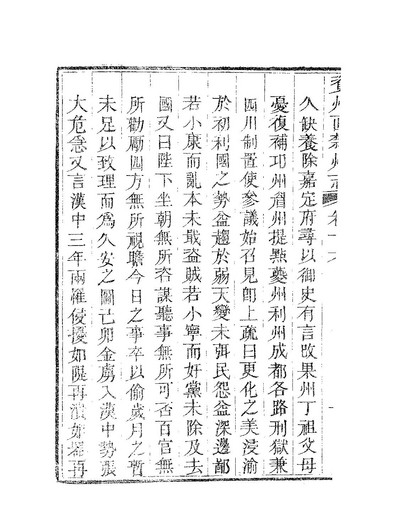 眉州直隸州志 卷十
久缺養除嘉定府尋以御史有言改果州丁祖父母
憂復補邛州眉州提點夔州利州成都各路刑獄兼
四川制置使參議始召見卽上疏曰更化之美浸渝
於初利國之勢益趨於弱天變未弭民怨益深邊鄙
若小康而亂本未戢盜賊若小寧而奸黨未除及去
國又曰陛下坐朝無所咨謀聽事無所可否百官無
所勸勵四方無所視瞻今日之事卒以偷歲月之暫
未足以致理而爲久安之圖己卯金虜入漢中勢張
大危急又言漢中三年兩罹侵擾如隄再潰如器再